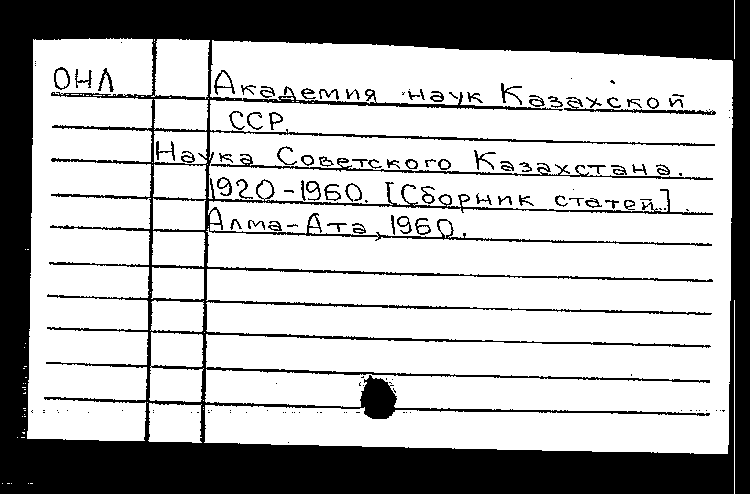 ОНЛ Академия наук Казахской
ССР.
Наука Советского Казахстана.
1920-1960. [Сборник статей].
Алма-Ата, 1960.